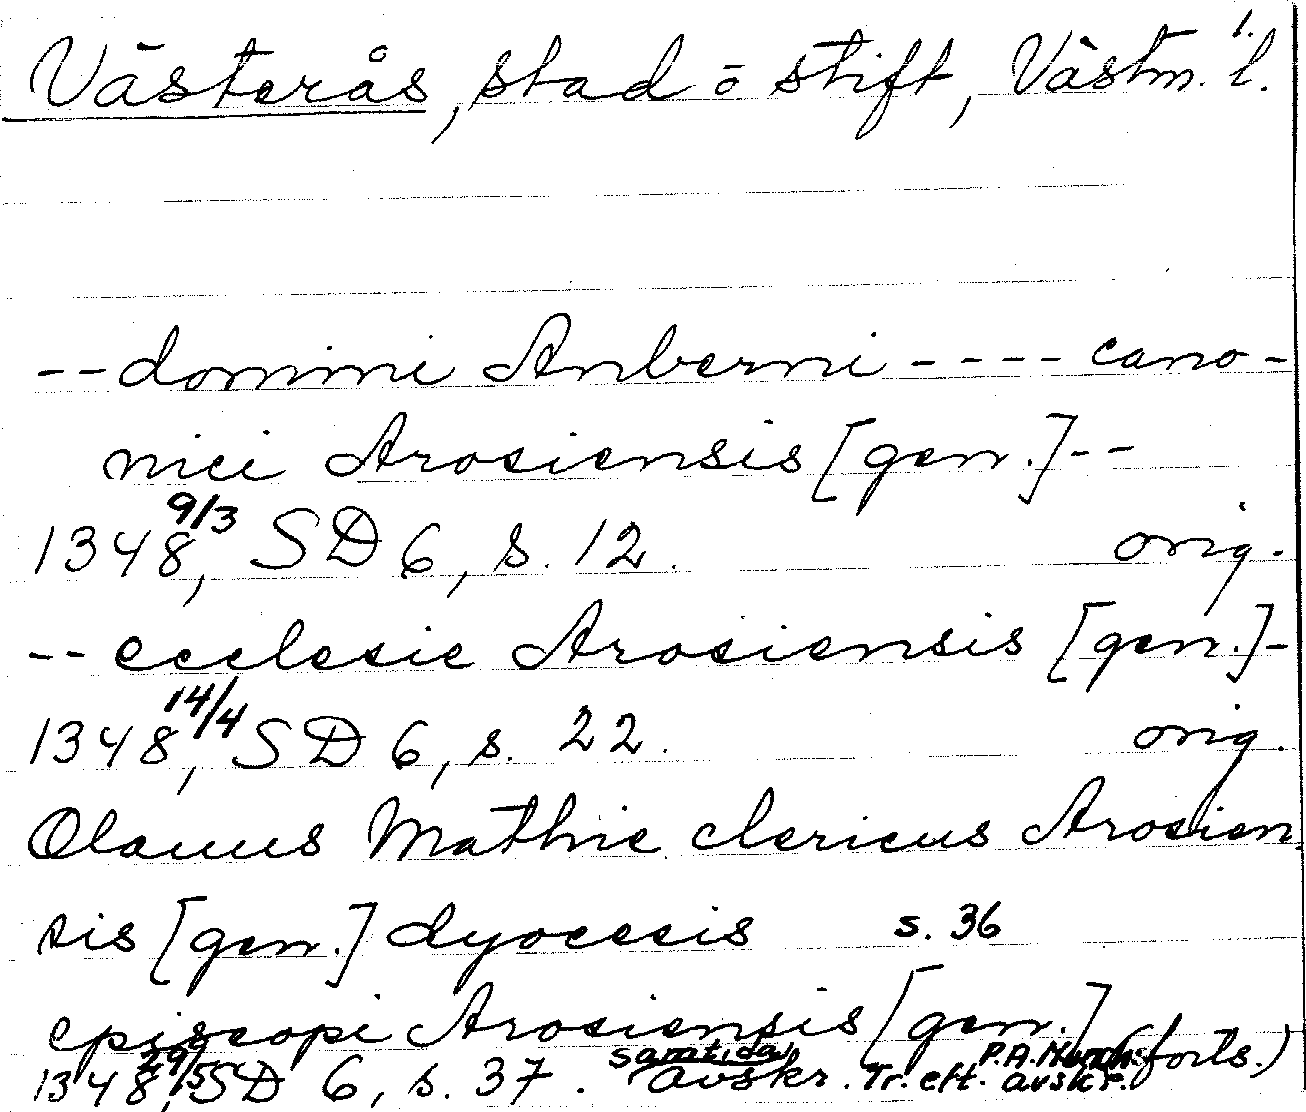 1.
Västerås, stad o stift, Västm. l.
-- domini Anberni ---- cano-
nici Arosiensis [gen.] --
1348 9/3, SD 6, s. 12. orig.
-- ecclesie Arosiensis [gen.] -
1348 14/4, SD 6, s. 22. orig.
Olauus Mathie clericus Arosien
sis [gen.] dyocesis s. 36
episcopi Arosiensis [gen.] (forts.)
1348 29/5, SD 6, s. 37. samtida avskr. Tr. eft. P.A. Munchs avskr.